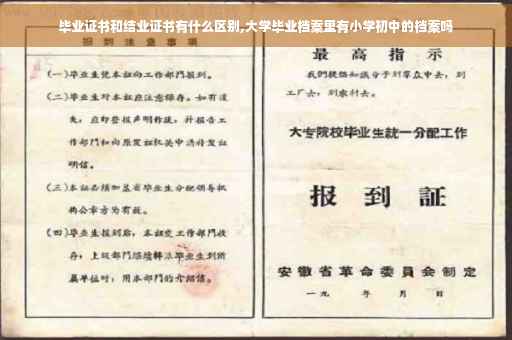 毕业证书和结业证书有什么区别,大学毕业档案里有小学初中的档案吗
报到注意事项
(一)毕业生凭本证向工作部门报到。
(二)毕业生对本证应注意保存。如有遗
失,应即登报声明作废,并报告工
作部门和向原发证机关申请补发证
明信。
(三)本证必须加盖省毕业生分配领导机
构公章方为有效。
(四)毕业生报到后,本证交工作部门收
存;上级部门继续转派毕业生到所
属单位时,用本部门的介绍信。
最高指示
我们提倡知识分子到群众中去,到
工厂去,到农村去。
大专院校毕业生統一分配工作
报到証
安徽省革命委員会制定
一九 年 月 日